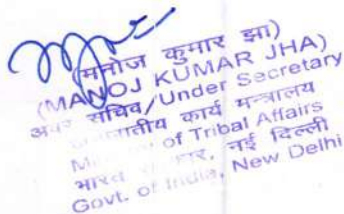 (मनोज कुमार झा)
(MANOJ KUMAR JHA)
अवर सचिव/Under Secretary
कार्य मन्त्रालय
of Tribal Affairs
भारत सरकार, नई दिल्ली
Govt. of India, New Delhi